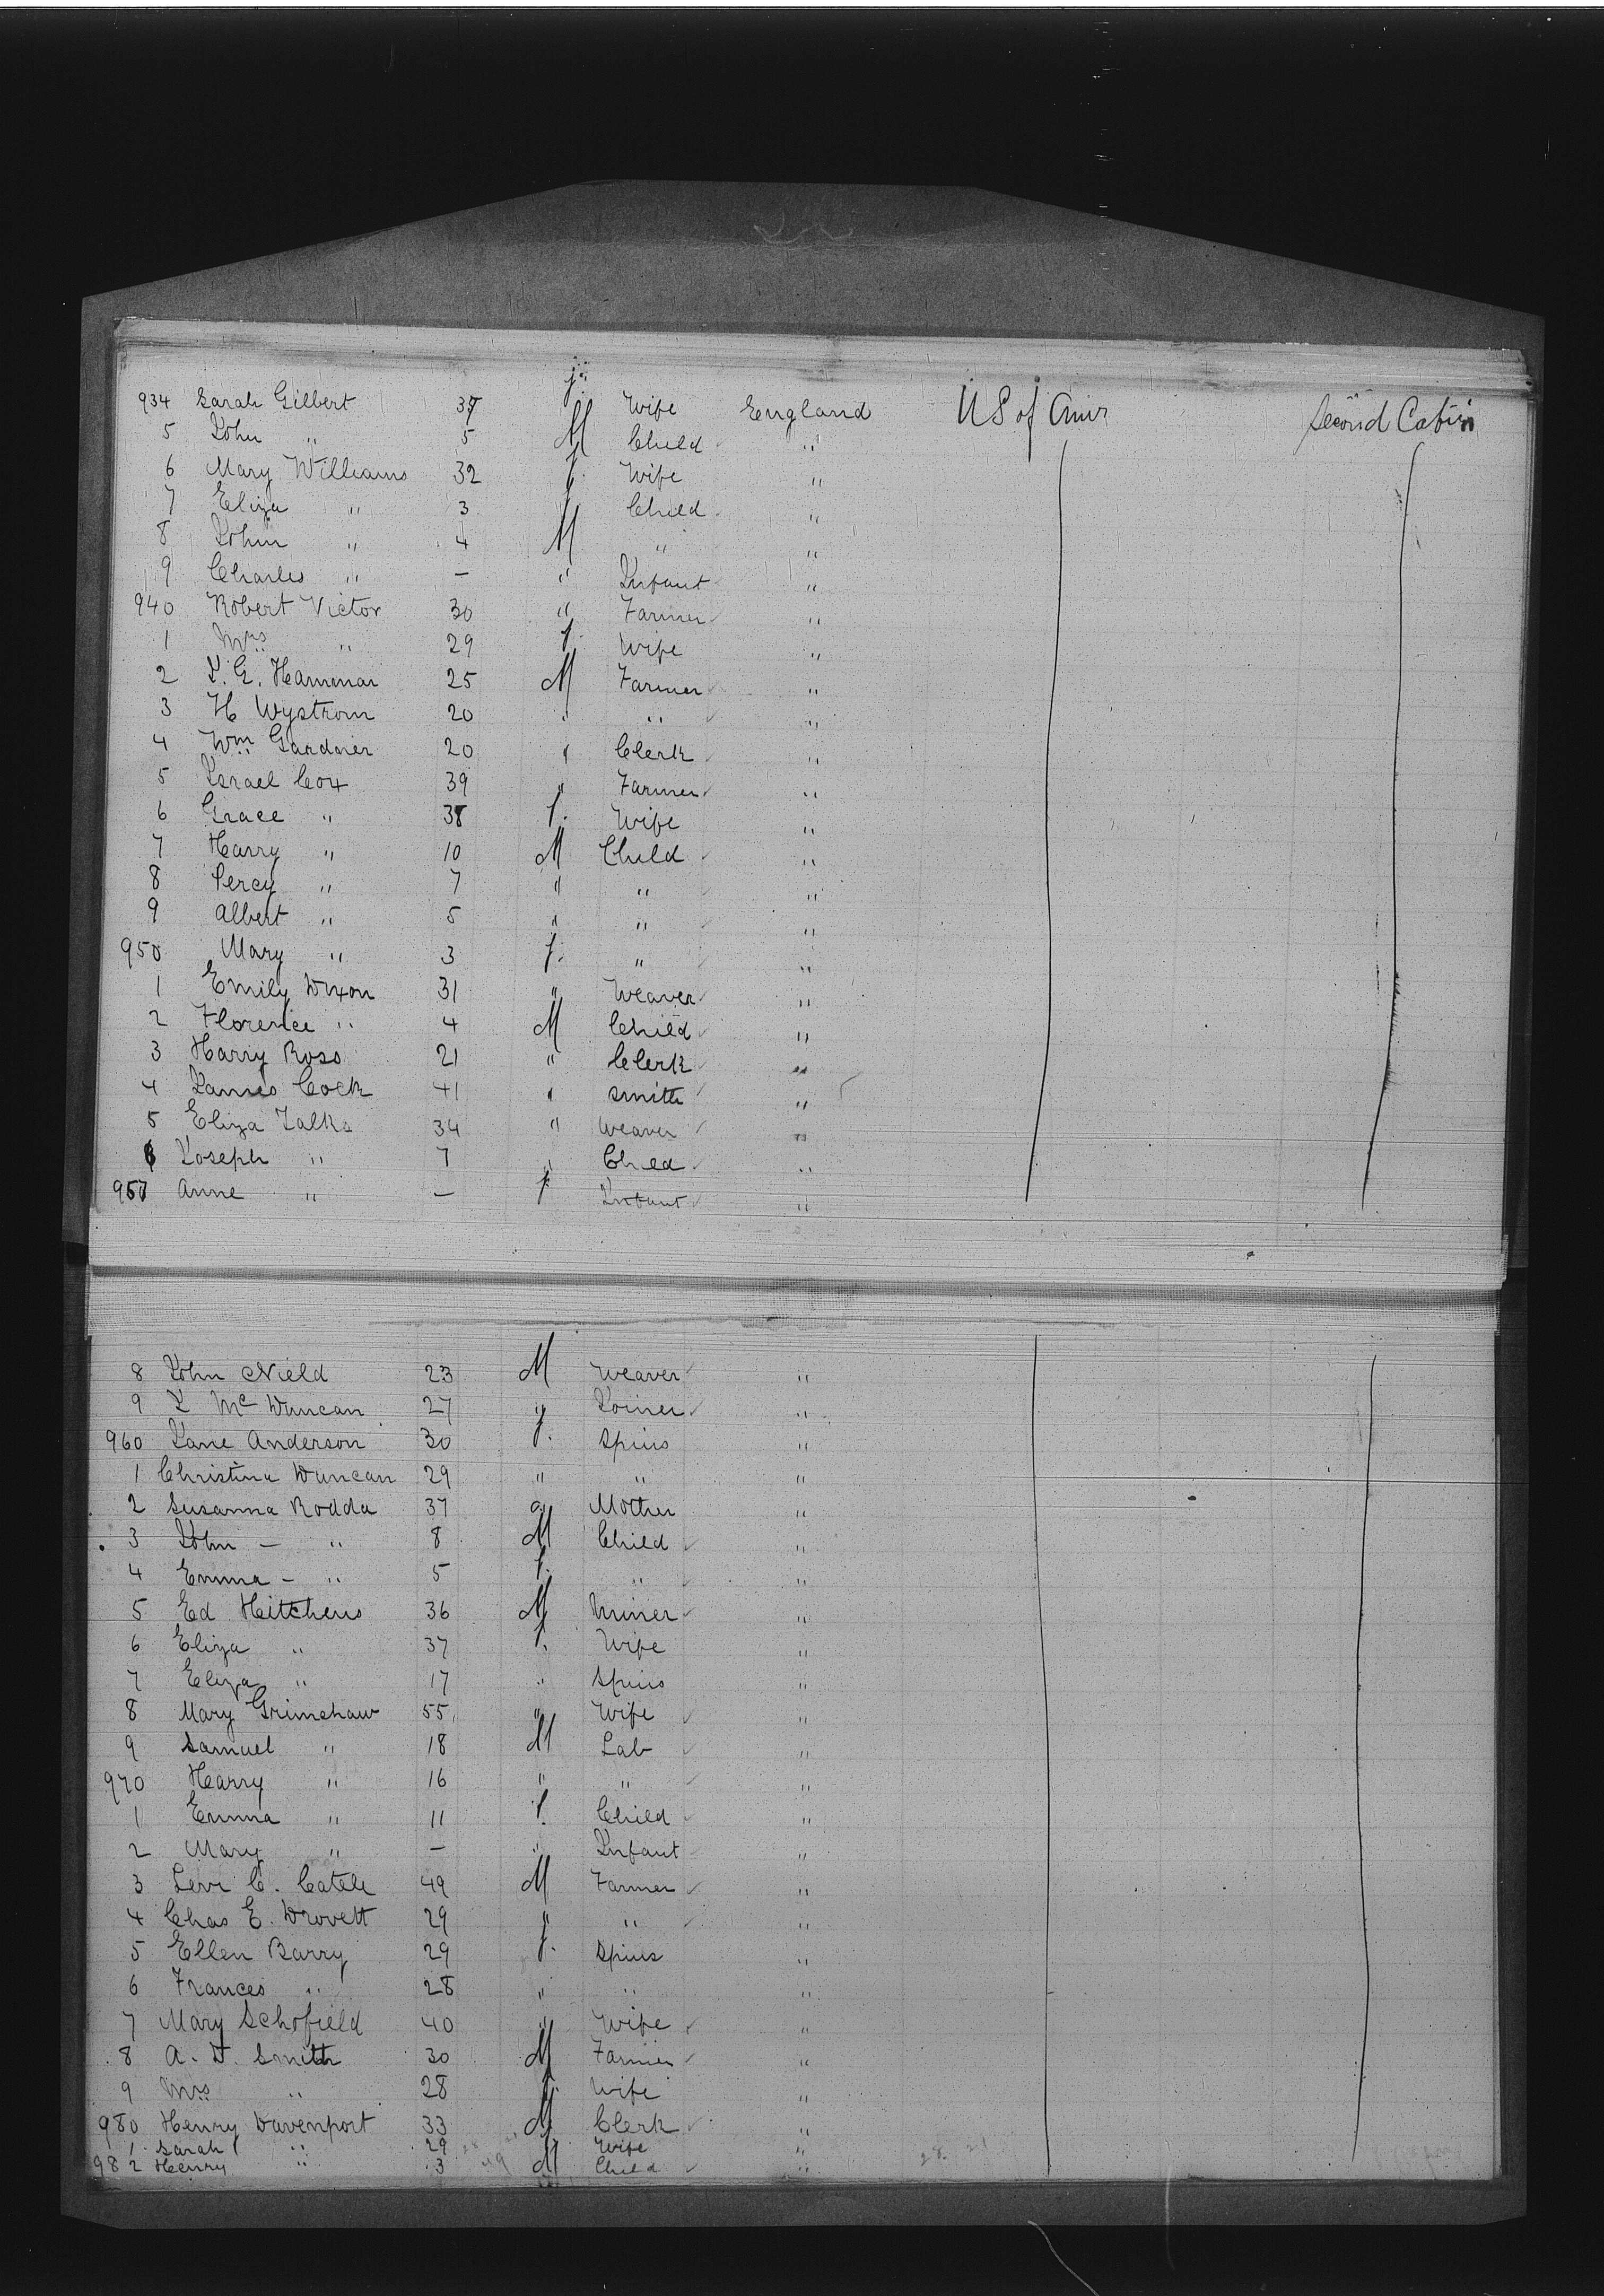 934 Sarah Gilbert 37 f. Wife England US of Amer Second Cabin
5 John " 5 M Child "
6 Mary Williams 32 f. Wife "
7 Eliza " 3 " Child "
8 John " 4 M " "
9 Charles " — " Infant "
940 Robert Victor 30 " Farmer "
1 Mrs " 29 f. Wife "
2 J. E. Hammar 25 M Farmer "
3 H Wystrom 20 " " "
4 Wm Gardner 20 " Clerk "
5 Israel Cox 39 " Farmer "
6 Grace " 38 f. Wife "
7 Harry " 10 M Child "
8 Percy " 7 " " "
9 Albert " 5 " " "
950 Mary " 3 f. " "
1 Emily Dixon 31 " Weaver "
2 Florence " 4 M Child "
3 Harry Ross 21 " Clerk "
4 James Cock 41 " Smith "
5 Eliza Talks 34 " Weaver "
6 Joseph " 7 " Child "
957 Anne " — f Infant "
8 John Nield 23 M Weaver "
9 J Mc Duncan 27 " Joiner "
960 Jane Anderson 30 f. Spins "
1 Christina Duncan 29 " " "
2 Susanna Rodda 37 " Mother "
3 John — " 8 M Child "
4 Emma — " 5 f. " "
5 Ed Hitchens 36 M Miner "
6 Eliza " 37 f. Wife "
7 Eliza " 17 " Spins "
8 Mary Grimshaw 55 " Wife "
9 Samuel " 18 M Lab "
970 Harry " 16 " " "
1 Emma " 11 f. Child "
2 Mary " — " Infant "
3 Levi C. 49 M Farmer "
4 Chas E. Drovett 29 " " "
5 Ellen Barry 29 f. Spins "
6 Frances " 28 " " "
7 Mary Schofield 40 " Wife "
8 A. D. Smith 30 M Farmer "
9 Mrs " 28 f. Wife "
980 Henry Davenport 33 M Clerk "
1 Sarah " 29 Wife "
982 Henry " 3 M Child "